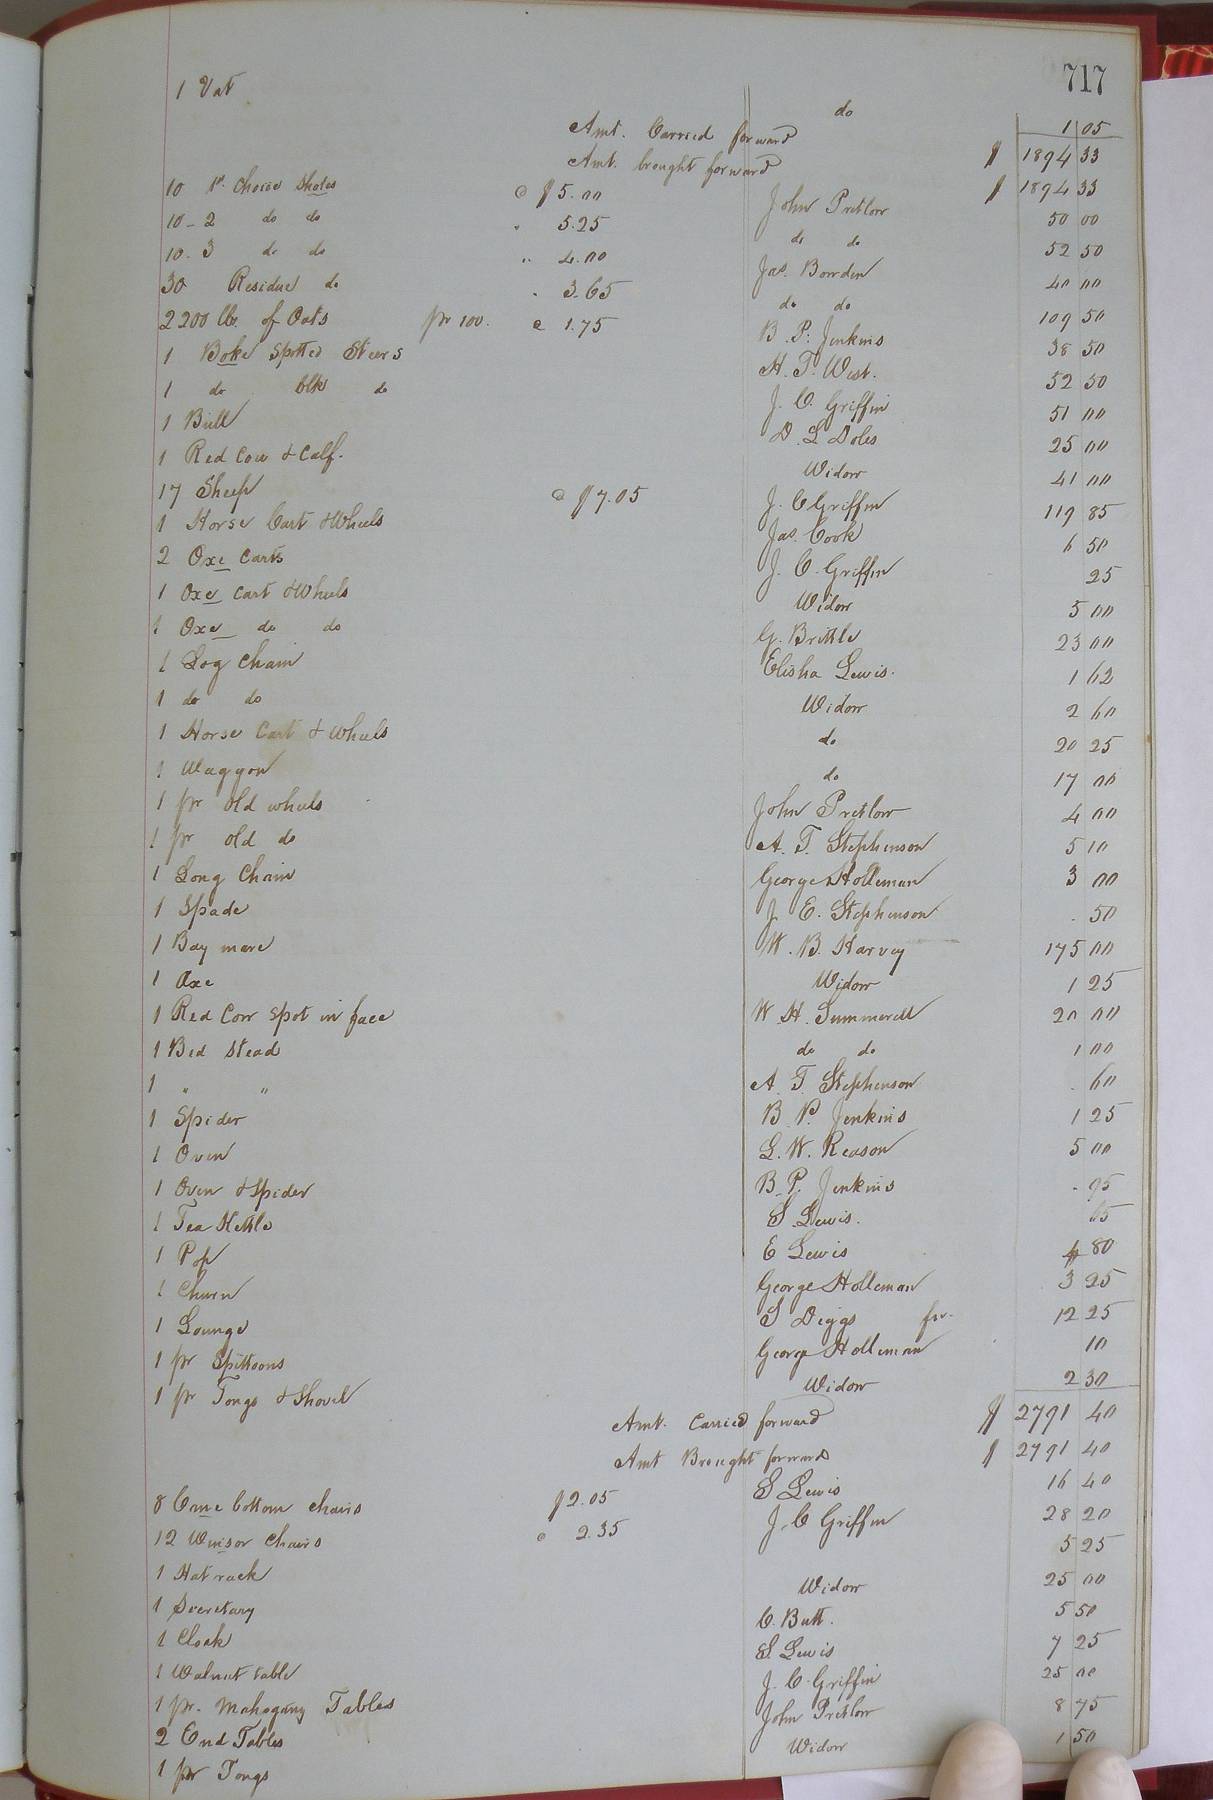 717
1 Vat do 1 05
Amt. Carried forward $ 1894 33
Amt. brought forward $ 1894 33
10 1st Choice Shotes @ $5.00 John Pretlow 50 00
10 - 2 do do " 5.25 do do 52 50
10 - 3 do do " 4.00 Jas. Bowden 40 00
30 Residue do " 3.65 do do 109 50
2200 lbs. of Oats pr 100. @ 1.75 B. P. Jenkins 38 50
1 Boke Spotted Steers H. T. West. 52 50
1 do blk do J. C. Griffin 51 00
1 Bull D. L Doles 25 00
1 Red Cow & Calf. Widow 41 00
17 Sheep @ $7.05 J. C Griffin 119 85
1 Horse Cart & Wheels Jas. Cook 6 50
2 Oxe Carts J. C. Griffin 25
1 Oxe Cart & Wheels Widow 5 00
1 Oxe do do G. Brittle 23 00
1 Log Chain Elisha Lewis. 1 62
1 do do Widow 2 60
1 Horse Cart & Wheels do 20 25
1 Waggon do 17 00
1 pr old wheels John Pretlow 4 00
1 pr old do A. T. Stephenson 5 10
1 Long Chain George Holleman 3 00
1 Spade J. E. Stephenson 50
1 Bay mare W. B. Harvey 175 00
1 Axe Widow 1 25
1 Red Cow Spot in face W. H. Summerell 20 00
1 Bed Stead do do 1 00
1 " " A. T. Stephenson 60
1 Spider B. P. Jenkins 1 25
1 Oven L. W. Reason 5 00
1 Oven & Spider B. P. Jenkins 95
1 Tea Kettle S. Lewis. 65
1 Pop E Lewis 80
1 Churn George Holleman 3 25
1 Lounge S Diggs for 12 25
1 pr Spittoons George Holleman 10
1 pr Tongs & Shovel Widow 2 30
Amt. Carried forward $ 2791 40
Amt Brought forward $ 2791 40
8 Cane bottom chairs $2.05 S Lewis 16 40
12 Winsor Chairs @ 2.35 J. C Griffin 28 20
1 Hat rack 5 25
1 Secretary Widow 25 00
1 Clock C. Butt. 5 50
1 Walnut table S. Lewis 7 25
1 pr. Mahogany Tables J. C. Griffin 25 00
2 End Tables John Pretlow 8 75
1 pr Tongs Widow 1 50